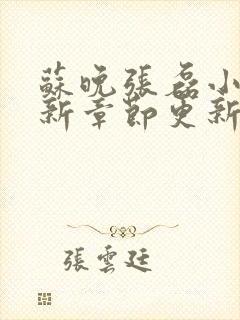 蘇晚張磊小
新章節更新
張雲廷